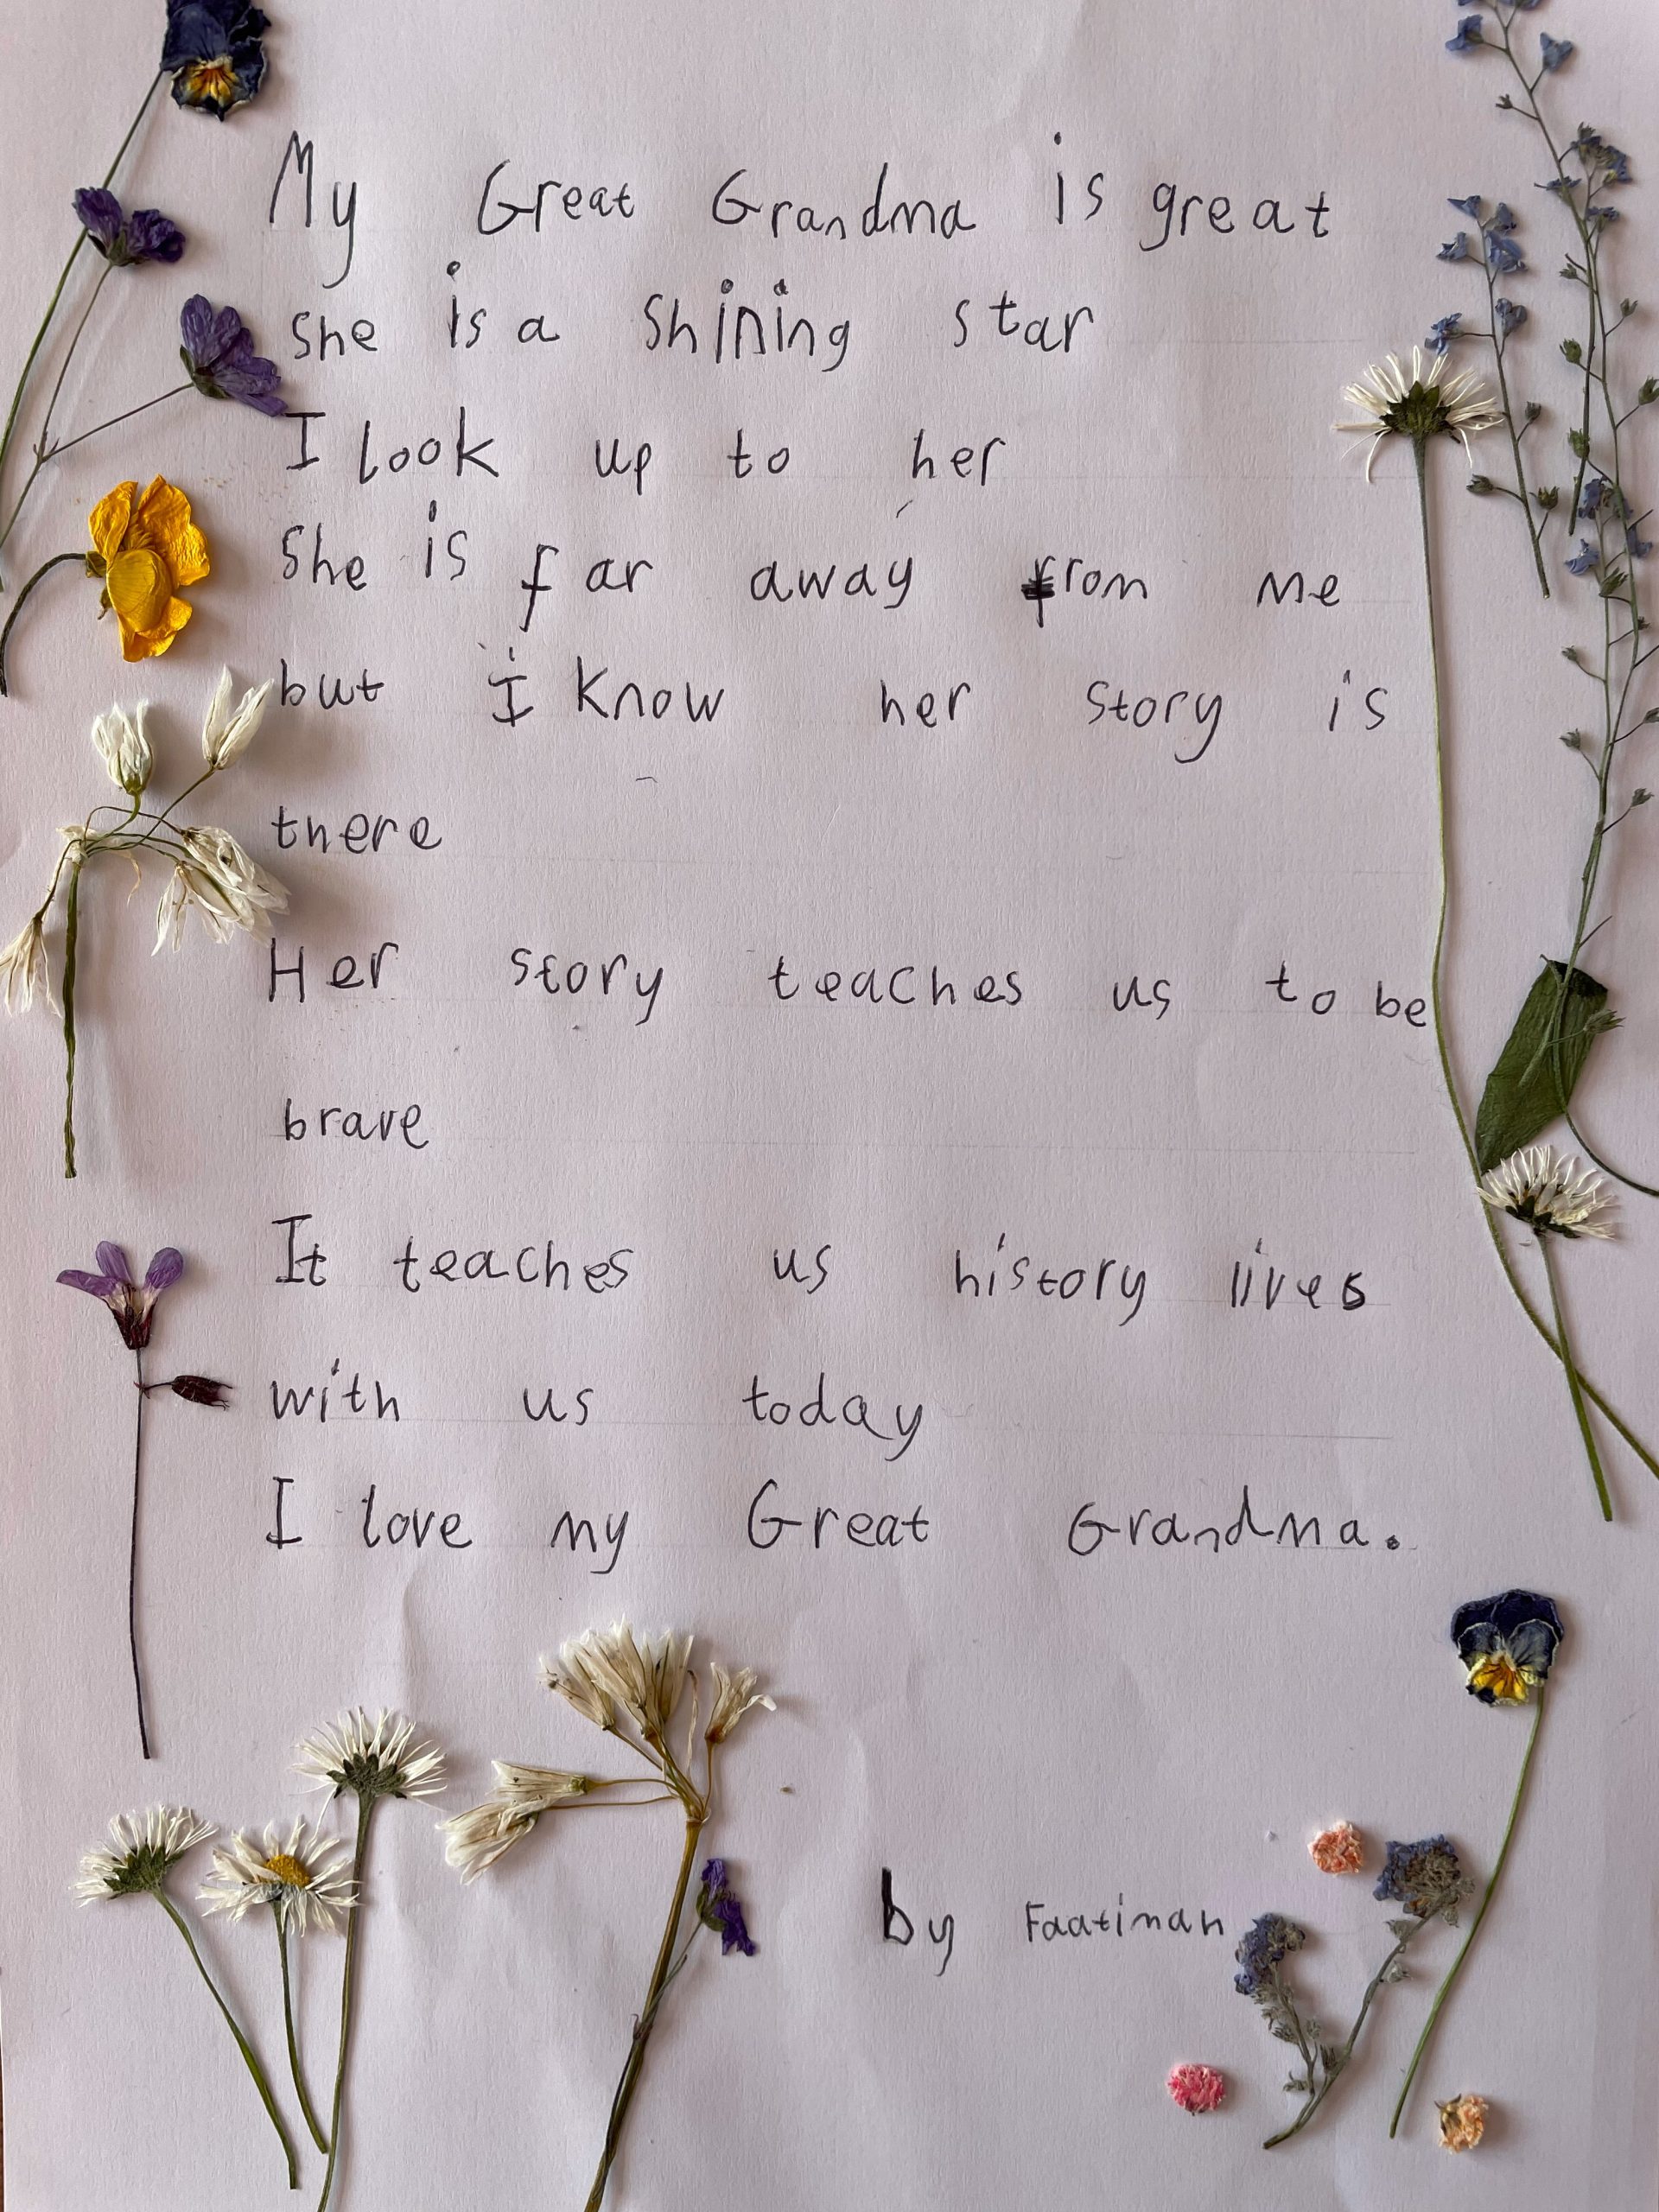 My Great Grandma is great
she is a shining star
I look up to her
she is far away from me
but I know her story is
there
Her story teaches us to be
brave
It teaches us history lives
with us today
I love my Great Grandma.
by Faatimah